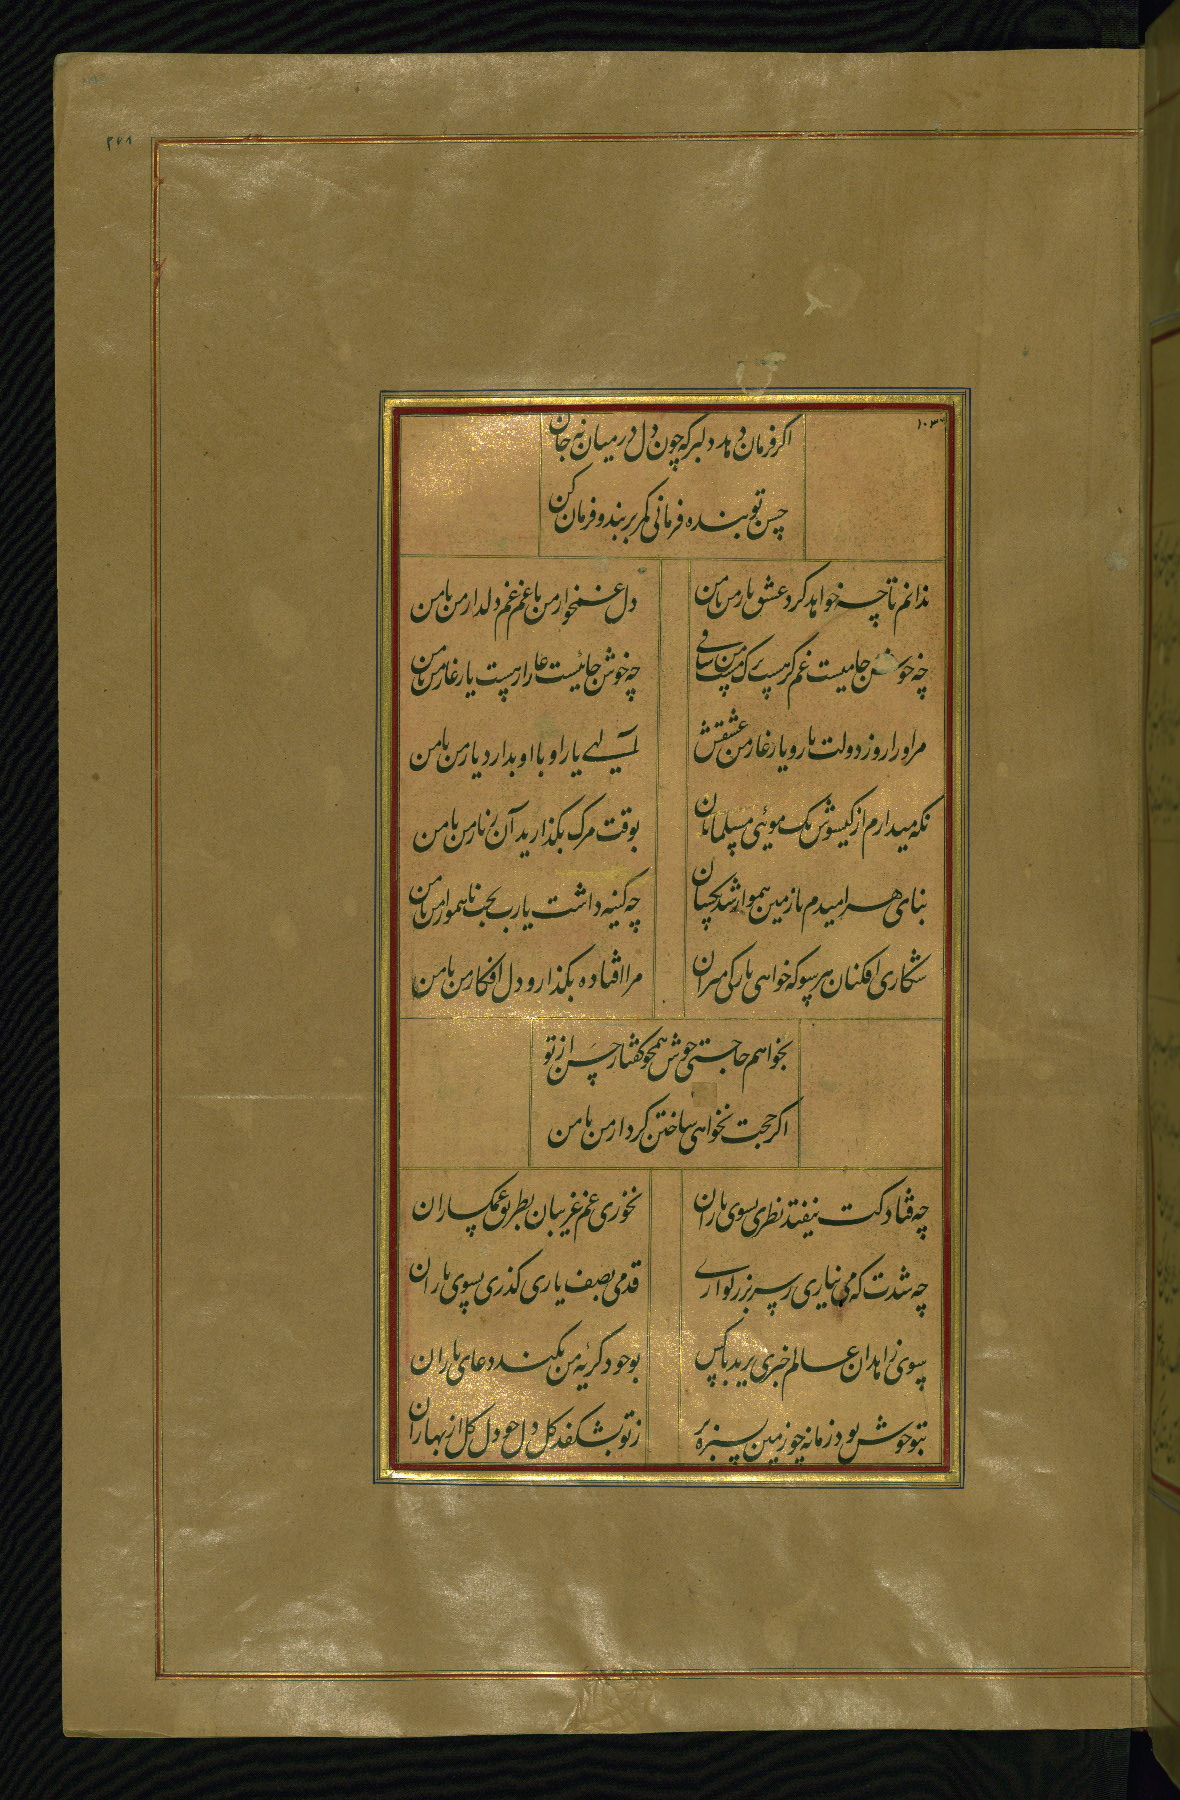 ۲۷۸
۱۰۳
اکر فرمان دهد دلبر که چون دل در میان نه جان
حسن تو بنده فرمانی کمر بربند و فرمان کن
ندانم تا چه خواهد کرد عشق یار من با من
دل غمخوار من با غم غم دلدار من با من
چه خوش جامیست غم کر هست ساقی
چه خوش جائیست غار ار هست یار غار من با من
مرا و را روز دولت یار و یار غار من عشقش
یار او با او بدارد یار من با من
نکه میدارم از کیسوش یک موئی مسلمانان
بوقت مرک بکذارید آن زنار من با من
بنای هر امیدم با زمین هموار شد یکسان
چه کینه داشت یارب بخت ناهموار من با من
شکاری افکنان هر سو که خواهی بارکی میران
مرا افتاده بکذار و دل افکار من با من
بخواهم حاجتی خوش همچو کفتار حسن از تو
اکر حجت نخواهی ساختن کردار من با من
چه فتاد کت نیفتد نظری بسوی یاران
نخوری غم غریبان بطریق غمکساران
چه شدت که می نیاری
قدمی بصف یاری کذری بسوی یاران
بسوی زاهدان عالم خبری برید باکس
بوجود کریه من نکند دعای باران
بتو خوش بود زمانه چو زمین بسبزه
ز تو بشکفد کل دل چو دل کل از بهاران